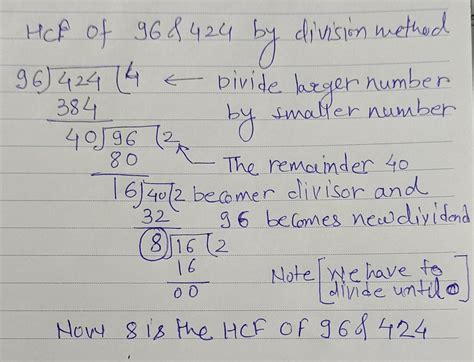 HCF of 96 & 424 by division method
96)424(4 ← Divide larger number
384 by smaller number
40)96(2
80 ← The remainder 40
16)40(2 becomes divisor and
32 96 becomes new dividend
8)16(2
16 Note [We have to
00 divide until 0]
Now 8 is the HCF OF 96 & 424